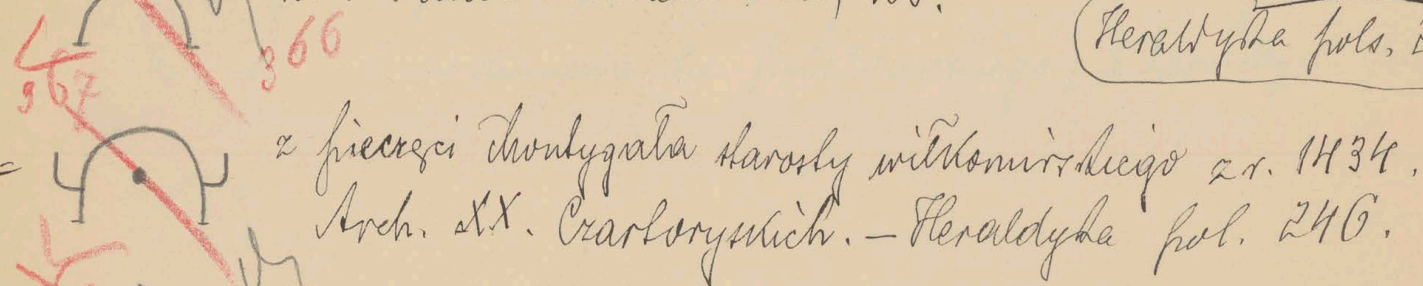 366
Heraldyka pols.
367
z pieczęci Montygała starosty wiłkomirskiego z r. 1434.
Arch. XX. Czartoryskich. – Heraldyka pol. 246.